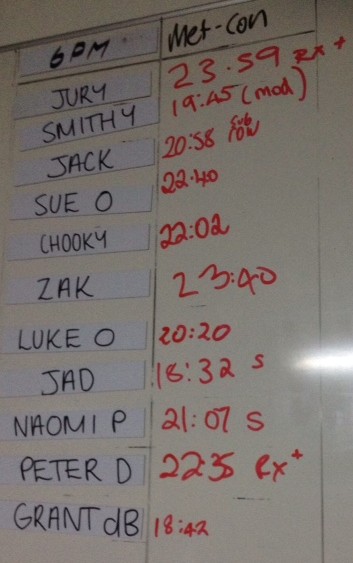 6PM Met-Con
JURY 23.59 Rx +
SMITHY 19:45 (mod)
JACK 20:58 SUB ROW
SUE O 22:40
CHOOKY 22:02
ZAK 23:40
LUKE O 20:20
JAD 18:32 S
NAOMI P 21:07 S
PETER D 2235 Rx+
GRANT dB 18:42